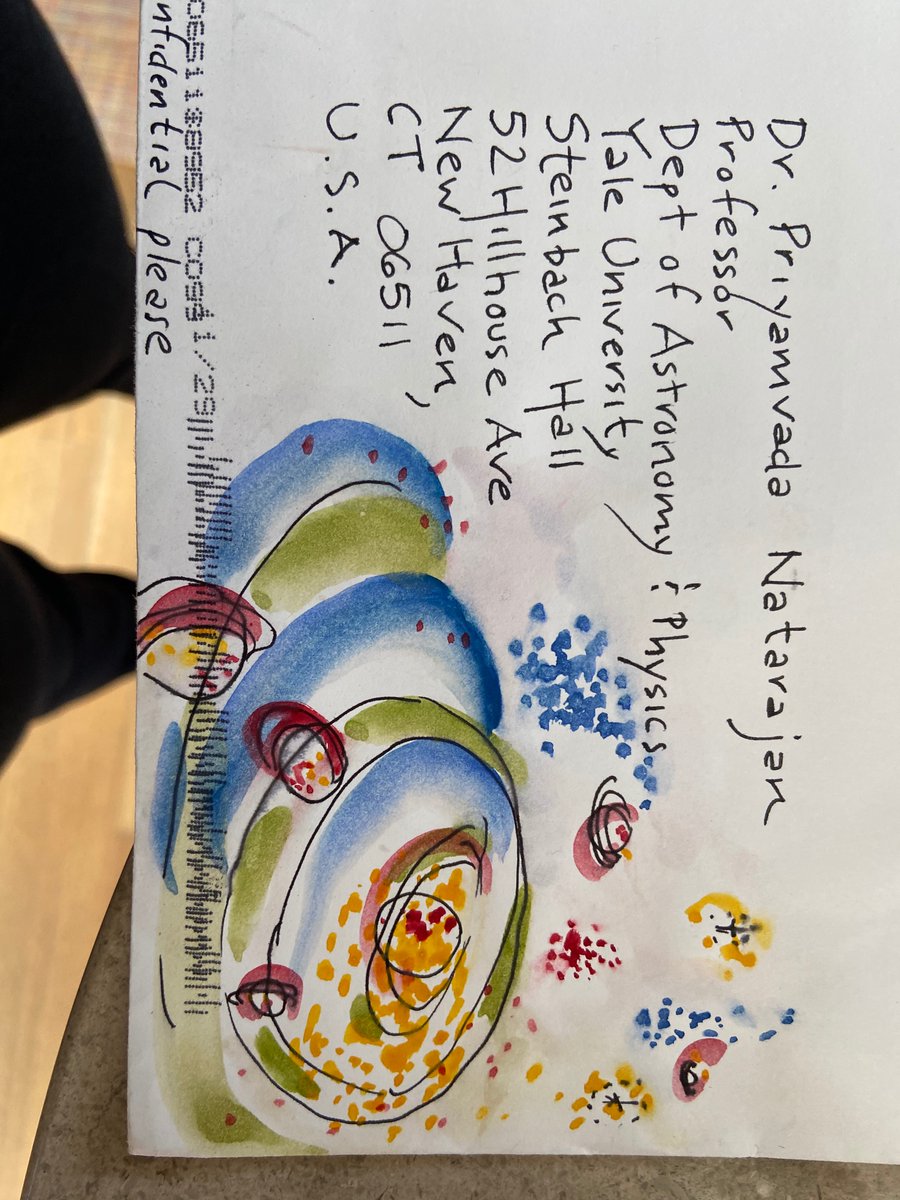 Dr. Priyamvada Natarajan
Professor
Dept of Astronomy & Physics
Yale University,
Steinbach Hall
52 Hillhouse Ave
New Haven,
CT 06511
U.S.A.
please